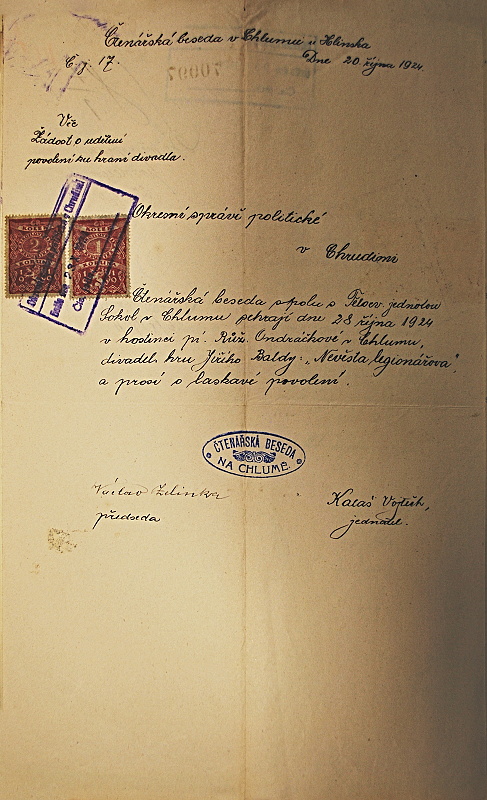 Čtenářská beseda v Chlumu u Hlinska
Čj. 17.
Dne 20. října 1924.
Věc
Žádost o udělení
povolení ku hraní divadla.
Okresní správě politické
v Chrudimi
Čtenářská beseda spolu s Tělocv. jednotou
Sokol v Chlumu sehrají dne 28 října 1924
v hostinci pí. Růž. Ondráčkové v Chlumu,
divadel. hru Jiřího Baldy: „Nevěsta legionářova",
a prosí o laskavé povolení.
ČTENÁŘSKÁ BESEDA
NA CHLUMĚ.
Václav Zelinka
předseda
Vojtěch,
jednatel.